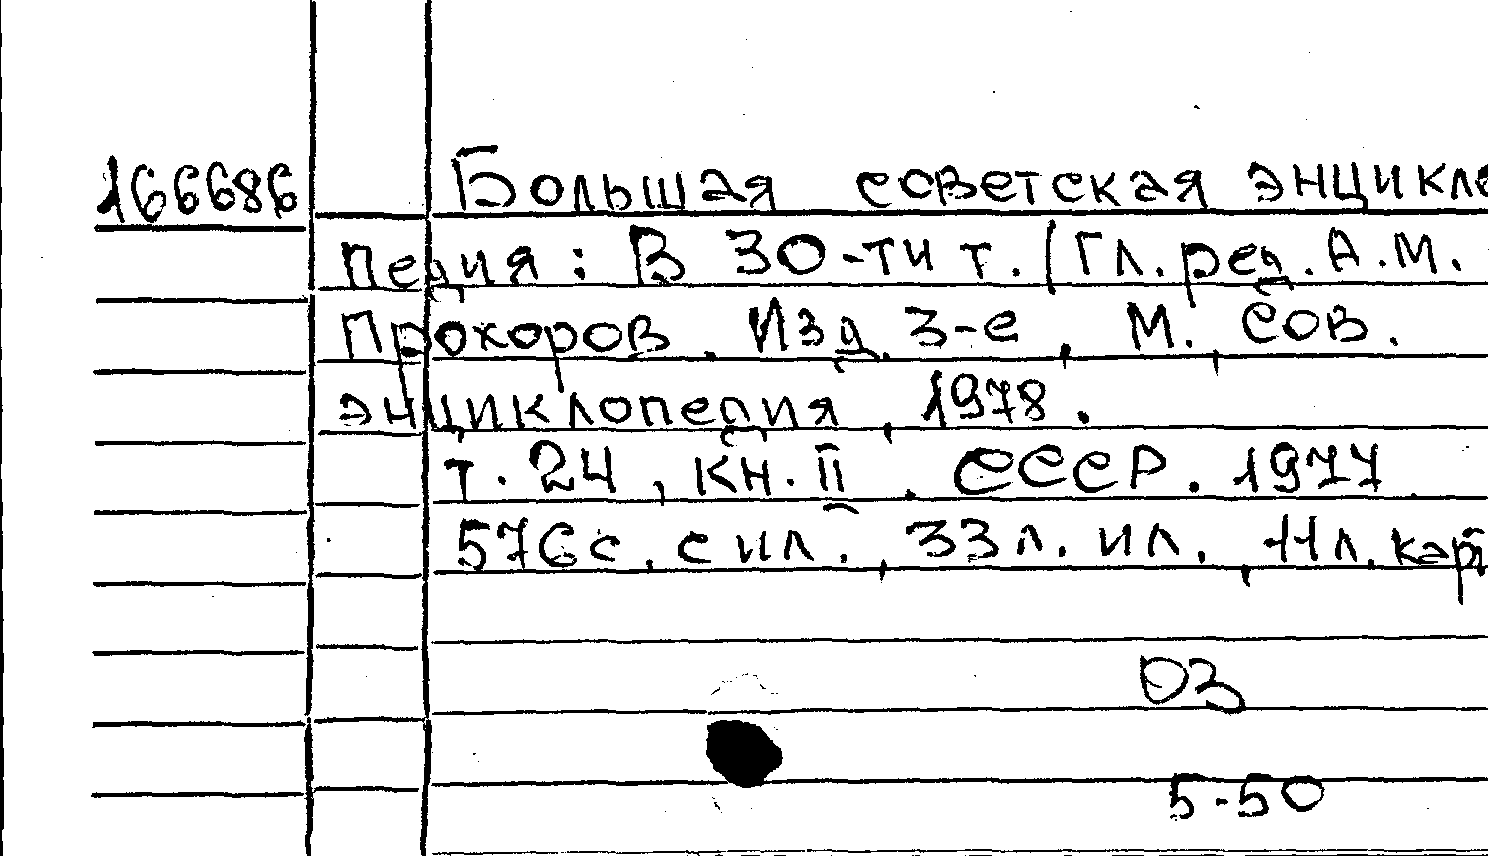 166686 Большая советская энцикло
педия : В 30-ти т. / Гл. ред. А.М.
Прохоров. Изд. 3-е, М., Сов.
энциклопедия, 1978.
т. 24, кн. II. СССР. 1977.
576 с. с ил., 33 л. ил., 11 л. карт
03
5-50